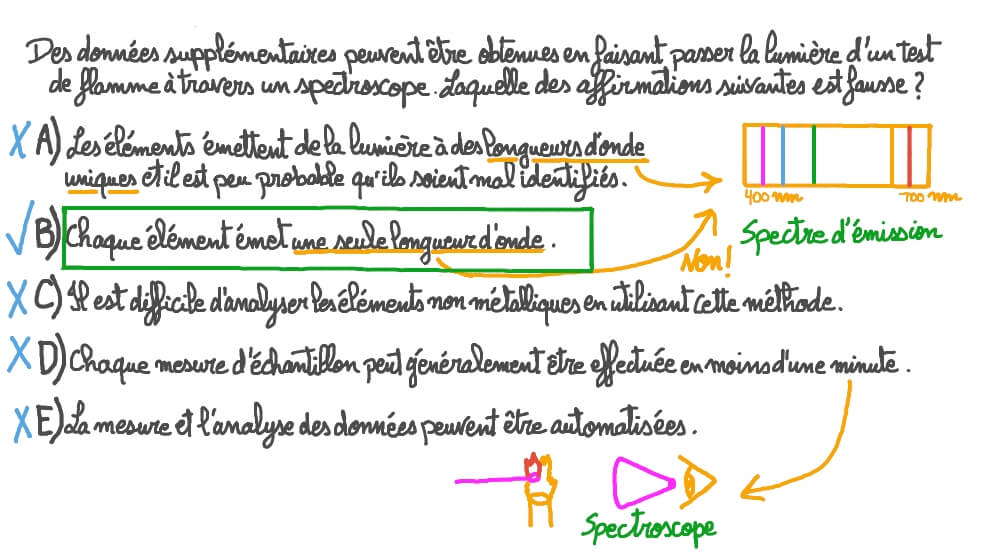 Des données supplémentaires peuvent être obtenues en faisant passer la lumière d'un test
de flamme à travers un spectroscope. Laquelle des affirmations suivantes est fausse ?
X A) Les éléments émettent de la lumière à des longueurs d'onde
uniques et il est peu probable qu'ils soient mal identifiés.
400 nm 700 nm
Spectre d'émission
✓ B) Chaque élément émet une seule longueur d'onde.
Non!
X C) Il est difficile d'analyser les éléments non métalliques en utilisant cette méthode.
X D) Chaque mesure d'échantillon peut généralement être effectuée en moins d'une minute.
X E) La mesure et l'analyse des données peuvent être automatisées.
Spectroscope